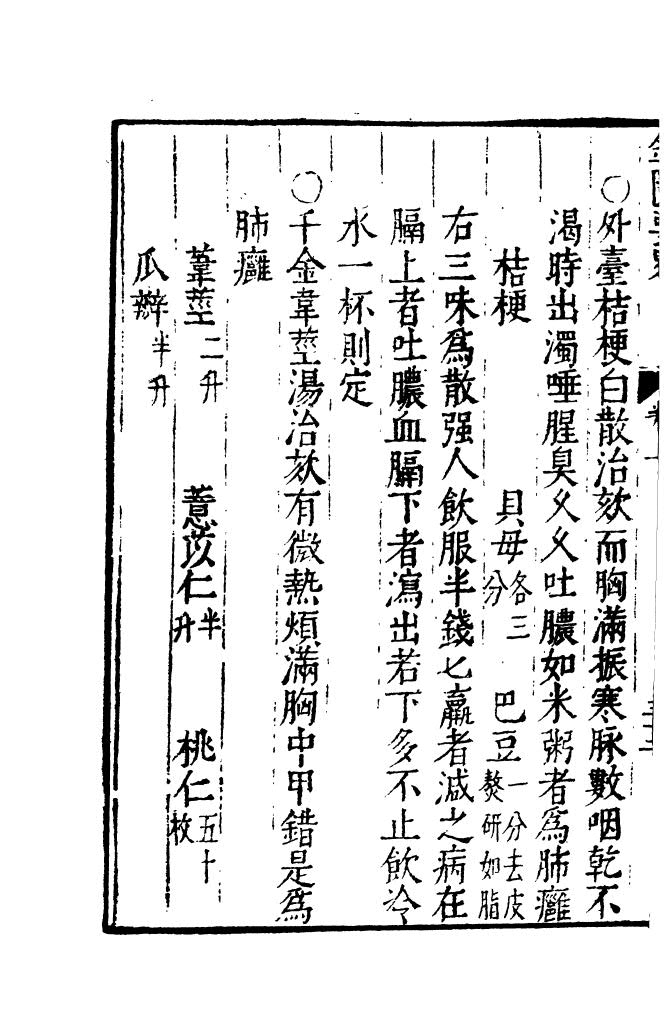 〇外臺桔梗白散治欬而胸滿振寒脉數咽乾不
渴時出濁唾腥臭久久吐膿如米粥者爲肺癰
桔梗 貝母各三分 巴豆一分去皮熬研如脂
右三味爲散强人飲服半錢匕羸者減之病在
膈上者吐膿血膈下者瀉出若下多不止飲冷
水一杯則定
〇千金葦莖湯治欬有微熱煩滿胸中甲錯是爲
肺癰
葦莖二升 薏苡仁半升 桃仁五十枚
瓜瓣半升